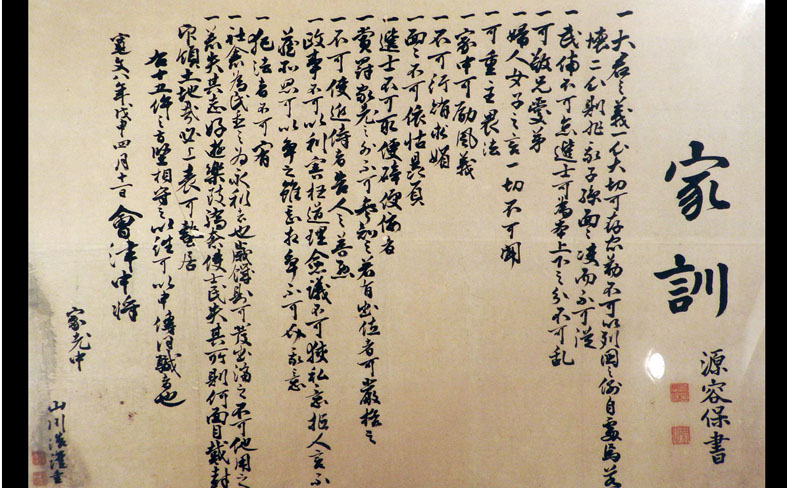 家訓
源容保書
一大君之義一心大切可存忠勤不可以列國之例自處焉若
懐二心則非我子孫面々決而不可從
一武備不可怠選士可為本上下之分不可乱
一可敬兄愛弟
一婦人女子之言一切不可聞
一可重主畏法
一家中可励風義
一不可行賄求媚
一面々不可依怙贔屓
一選士不可取便辟便侫者
一賞罰家老之外不可参知之若有出位者可嚴格之
一不可使近侍者告人之善悪
一政事不可以利害枉道理僉議不可挟私意拒人言不
蔵所思可以争之雖甚相争不可介我意
一犯法者不可宥
一社倉為民置之為永利者也歳饑則可發出濟之不可他用之
一若失其志好遊樂致驕奢使士民失其所則何面目戴封
印領土地哉必上表可蟄居
右十五件之旨堅相守之以往可以申傳同職者也
寛文八年戊申四月十一日 會津中将
家老中
山川浩謹書